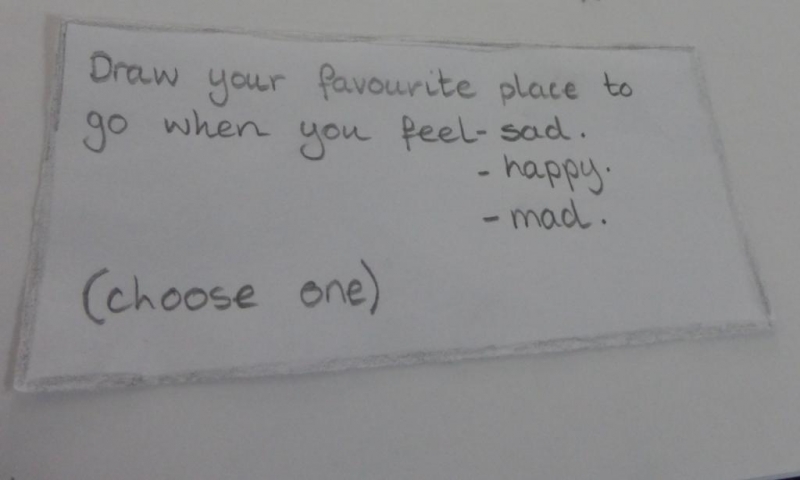 Draw your favourite place to
go when you feel - sad.
- happy.
- mad.
(choose one)